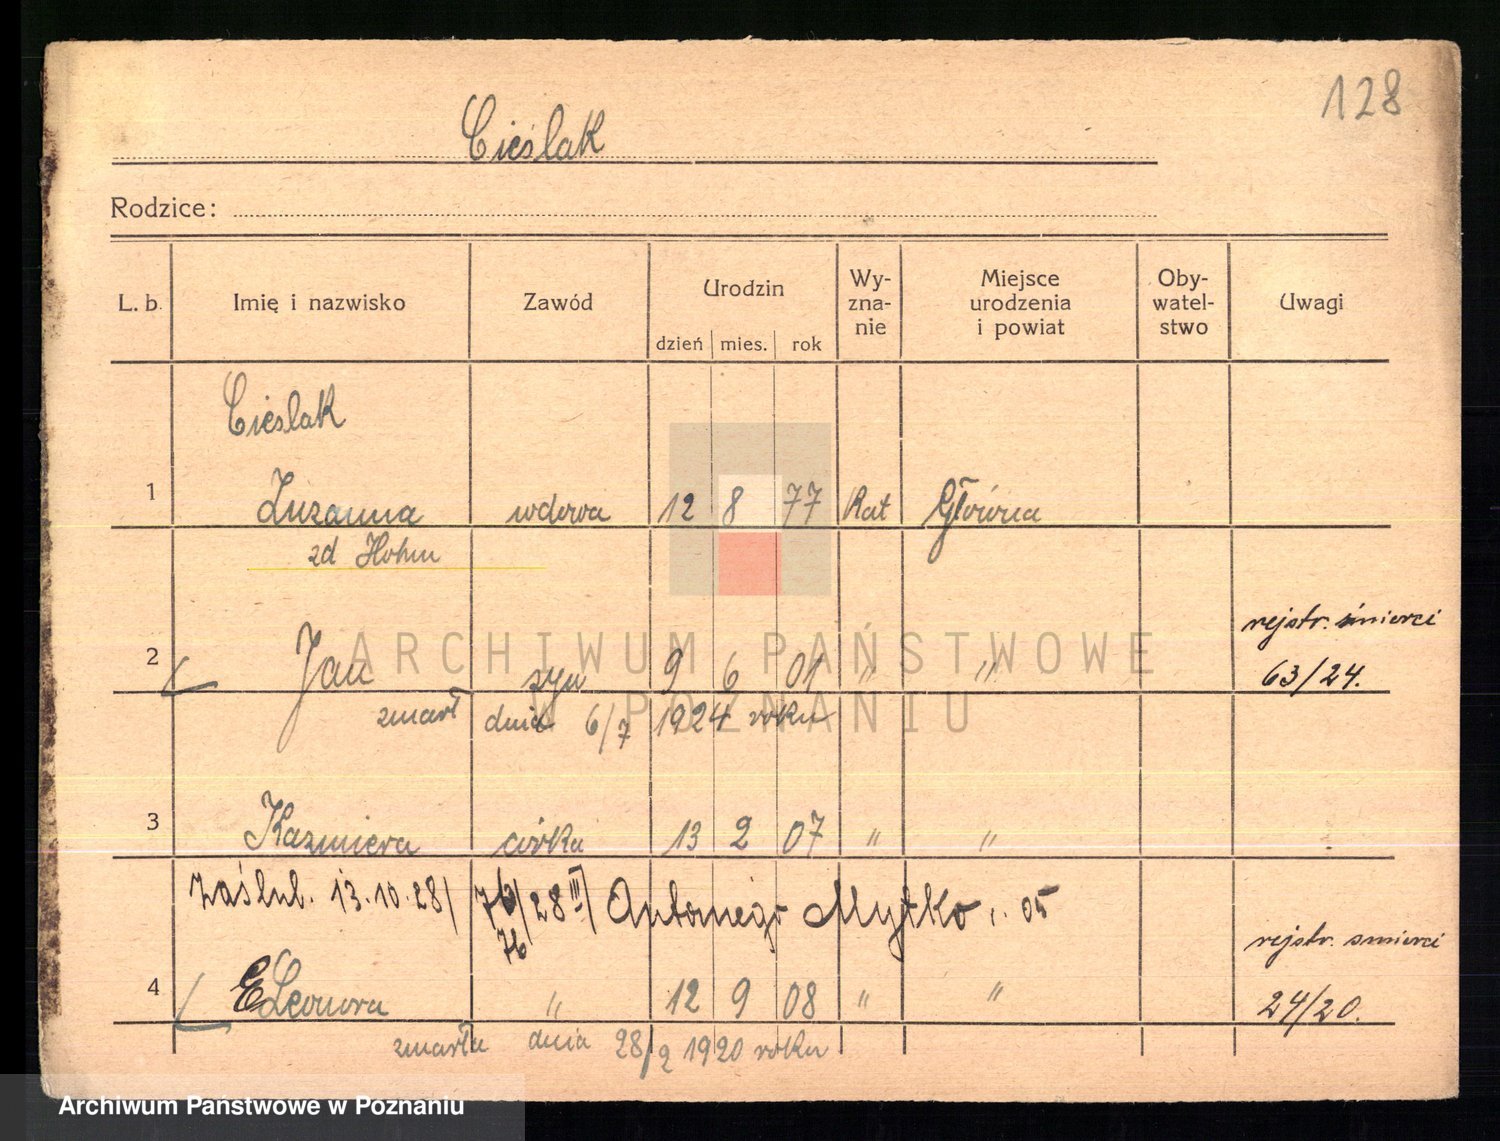 128
Cieślak
Rodzice:
L. b. Imię i nazwisko Zawód Urodzin dzień mies. rok Wy-zna-nie Miejsce urodzenia i powiat Oby-watel-stwo Uwagi
Cieslak
1 Zuzanna wdowa 12 8 77 Kat Główna
zd Hohm
rejstr. śmierci
2 Jan syn 9 6 01 " " 63/24.
zmarł dnia 6/7 1924 roku
ARCHIWUM PAŃSTWOWE
W POZNANIU
3 Kazmiera córka 13 2 07 " "
zaślub. 13.10.28/ 76/28 III/ Antoniego Mytko 05
76
rejstr. smierci
4 ELeonora " 12 9 08 " " 24/20.
zmarła dnia 28/2 1920 roku
Archiwum Państwowe w Poznaniu